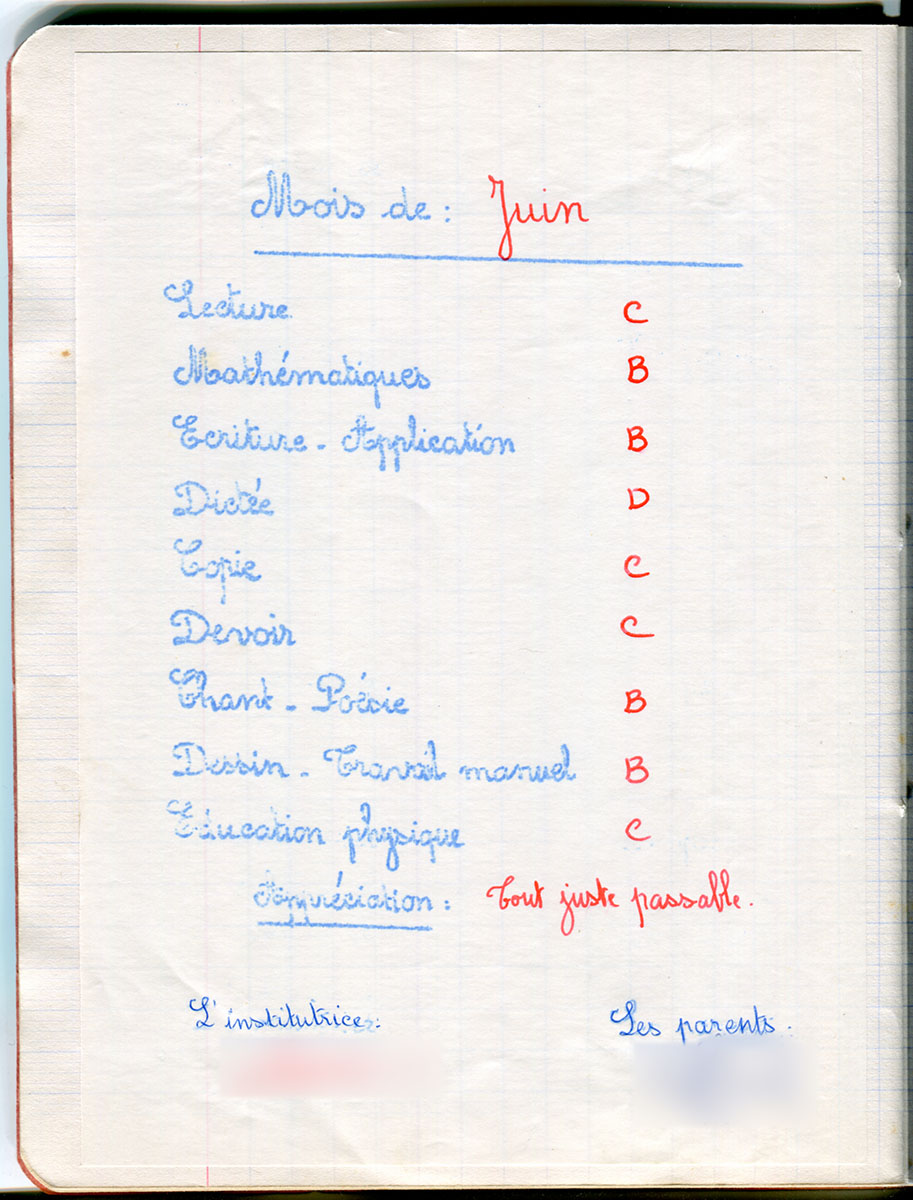 Mois de : Juin
Lecture C
Mathématiques B
Ecriture - Application B
Dictée D
Copie C
Devoir C
Chant - Poésie B
Dessin - Travail manuel B
Education physique C
Appréciation : Tout juste passable.
L'institutrice : Les parents.